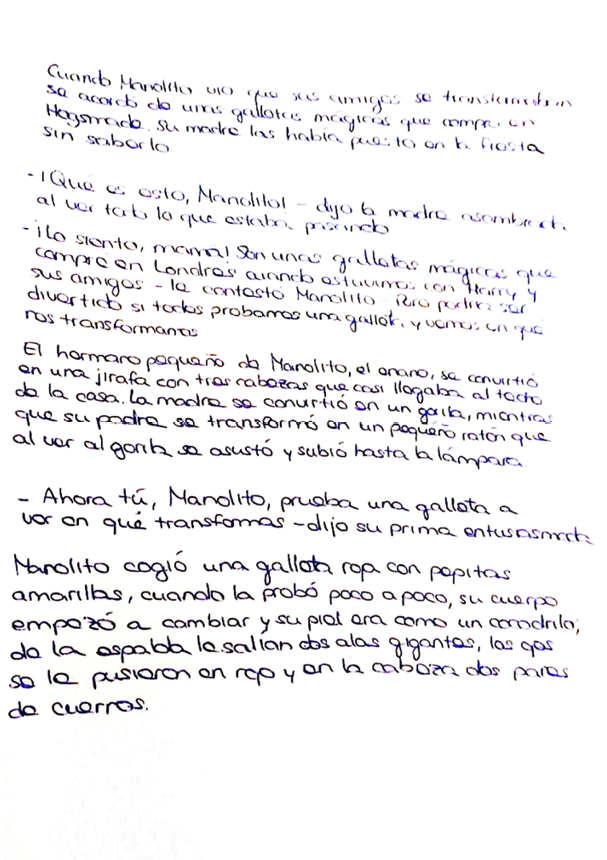 Cuando Manolito vio que sus amigos se transformaban
se acordó de unas galletas mágicas que compró en
Hogsmade. Su madre las había puesto en la fiesta
sin saberlo
- ¡Qué es esto, Manolito! - dijo la madre asombrada
al ver todo lo que estaba pasando
- ¡Lo siento, mama! Son unas galletas mágicas que
compre en Londres cuando estuvimos con Harry y
sus amigos - le contestó Manolito - Pero podría ser
divertido si todos probamos una galleta y vemos en qué
nos transformamos
El hermano pequeño de Manolito, el enano, se convirtió
en una jirafa con tres cabezas que casi llegaba al techo
de la casa. La madre se convirtió en un gorila, mientras
que su padre se transformó en un pequeño ratón que
al ver al gorila se asustó y subió hasta la lámpara
- Ahora tú, Manolito, prueba una galleta a
ver en qué transformas - dijo su prima entusasmada
Manolito cogió una galleta roja con pepitas
amarillas, cuando la probó poco a poco, su cuerpo
empezó a cambiar y su piel era como un cocodrilo;
de la espalda le salían dos alas gigantes, los ojos
se le pusieron en rojo y en la cabeza dos pares
de cuernos.